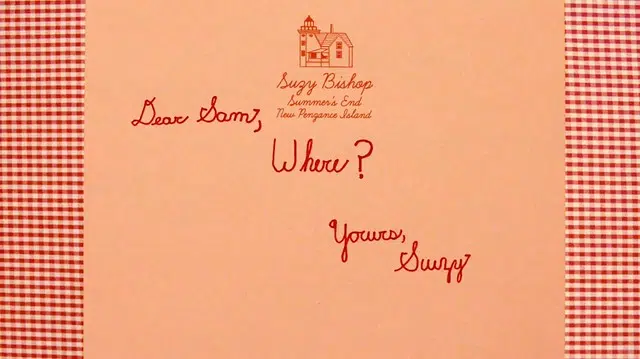 Suzy Bishop
Summer's End
New Penzance Island
Dear Sam,
Where?
Yours,
Suzy